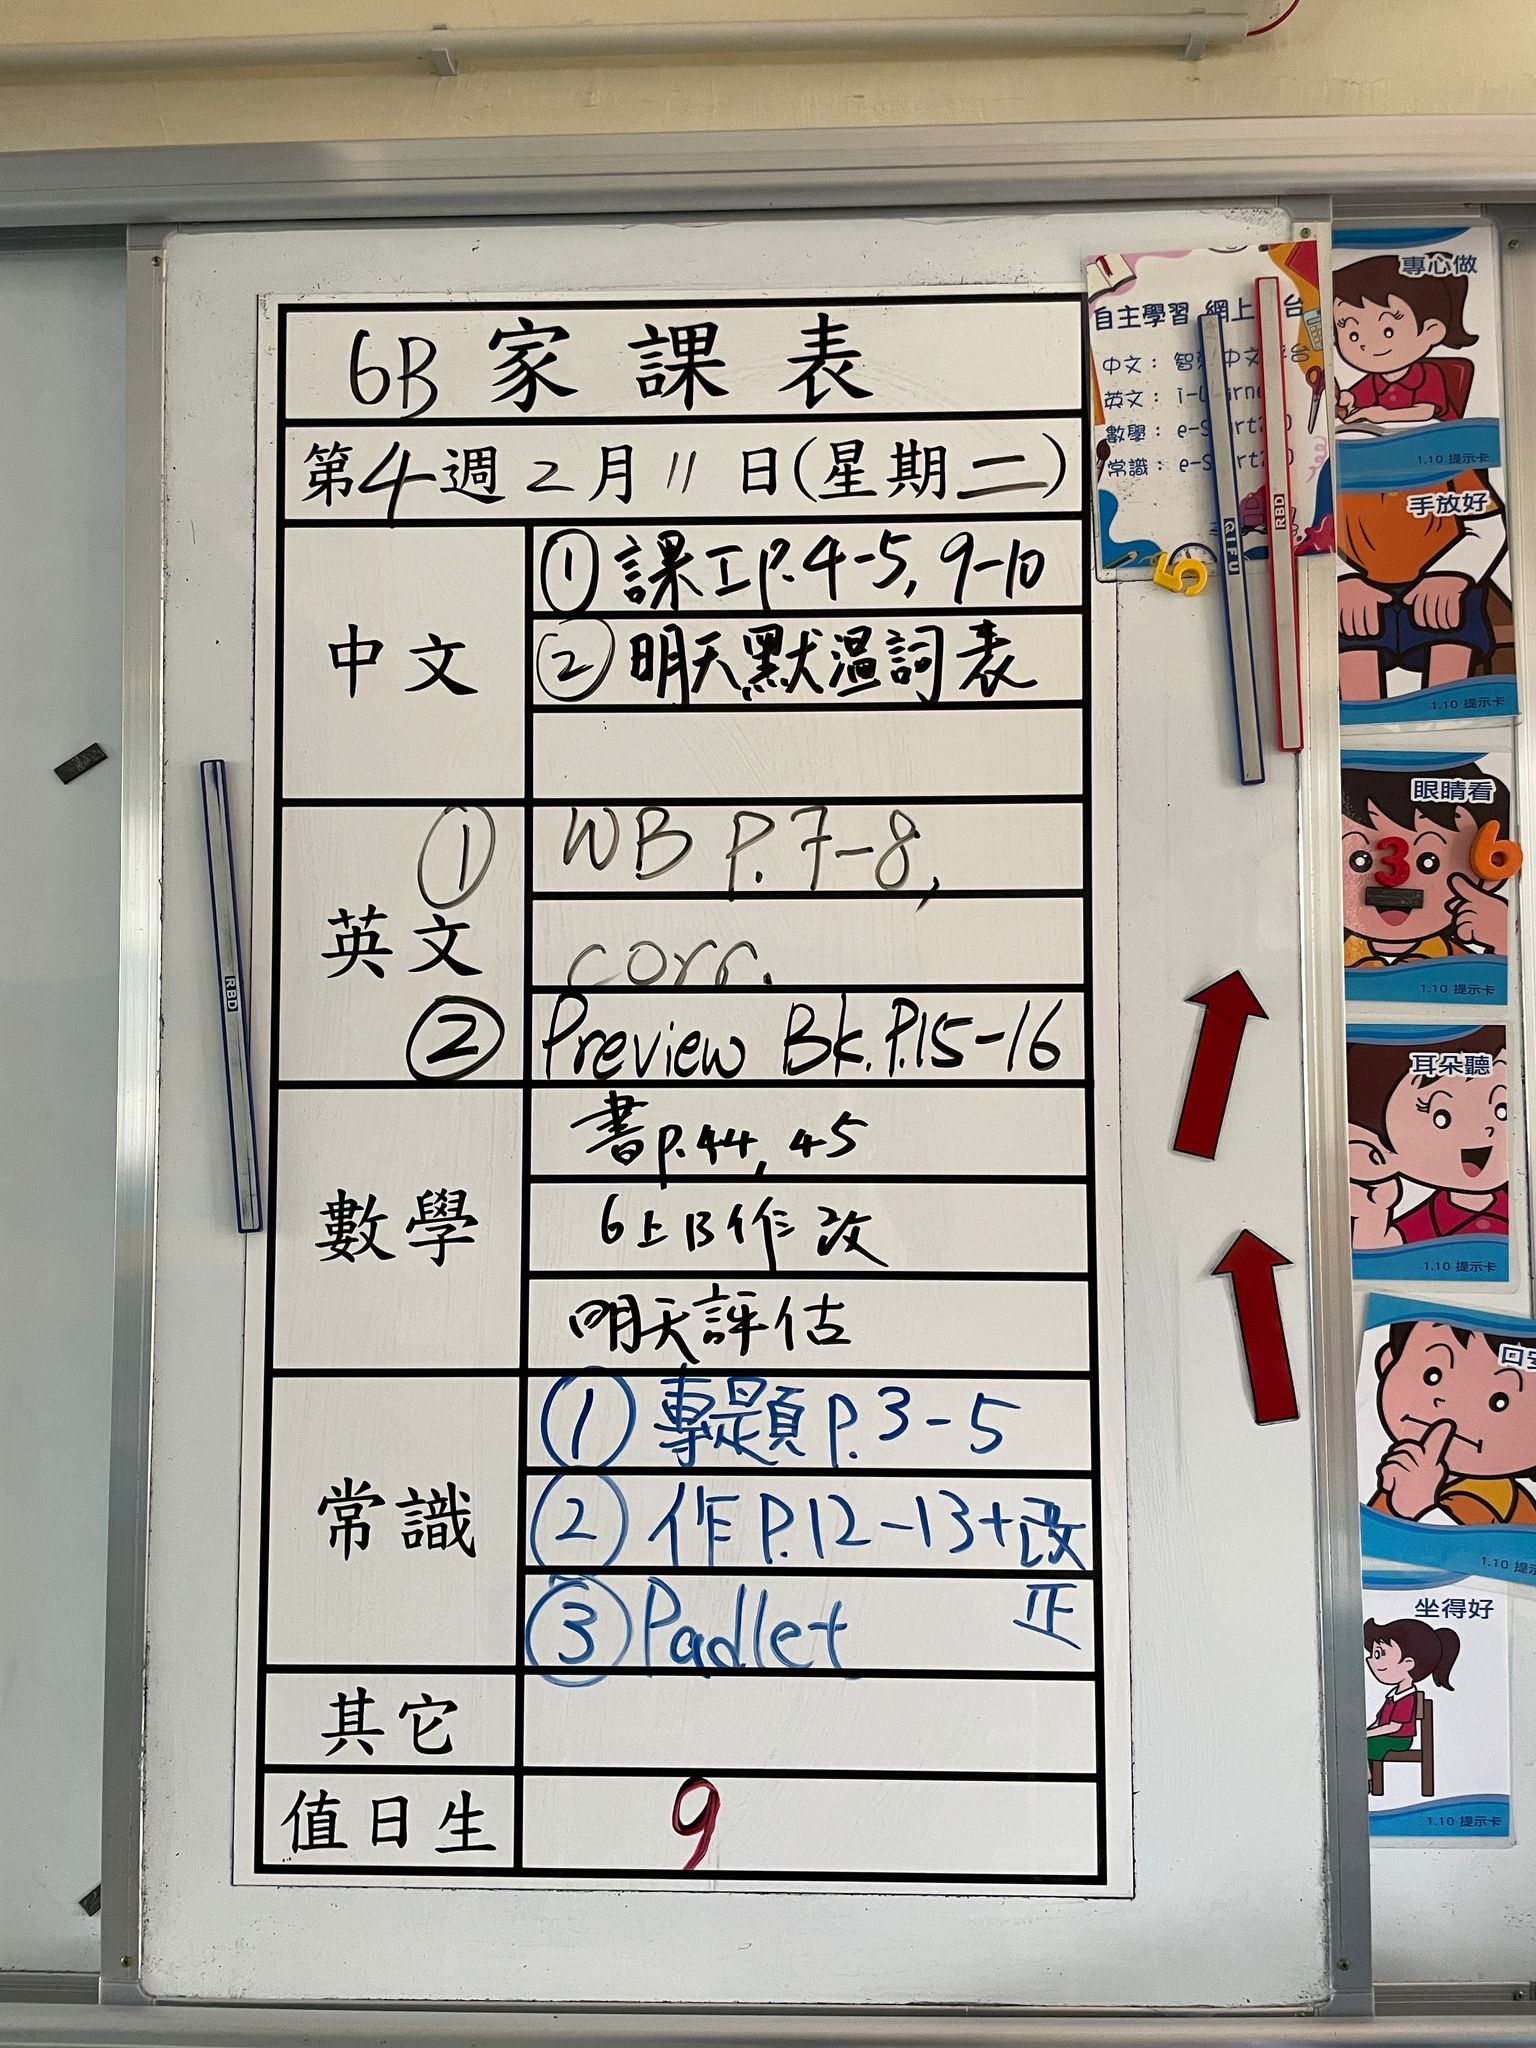 6B 家課表
第4週 2月11日(星期二)
中文
① 課工P.4-5, 9-10
② 明天默溫詞表
英文
① WB P.7-8,
corr.
② Preview Bk. P.15-16
數學
書P.44, 45
6上B作改
明天評估
常識
① 專題P.3-5
② 作P.12-13+改
正
③ Padlet
其它
值日生
9
自主學習 網上 台
中文: 智 中文 台
英文: i-L
數學: e-S
常識: e-S
5
QIFU
RBD
RBD
專心做
1.10 提示卡
手放好
1.10 提示卡
眼睛看
3
6
1.10 提示卡
耳朵聽
1.10 提示卡
口
1.10 提示
坐得好
1.10 提示卡